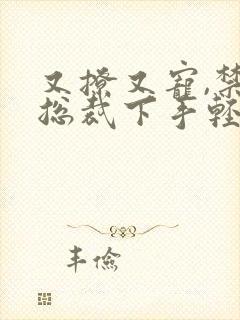 又撩又寵,禁
总裁下手輕
丰儉